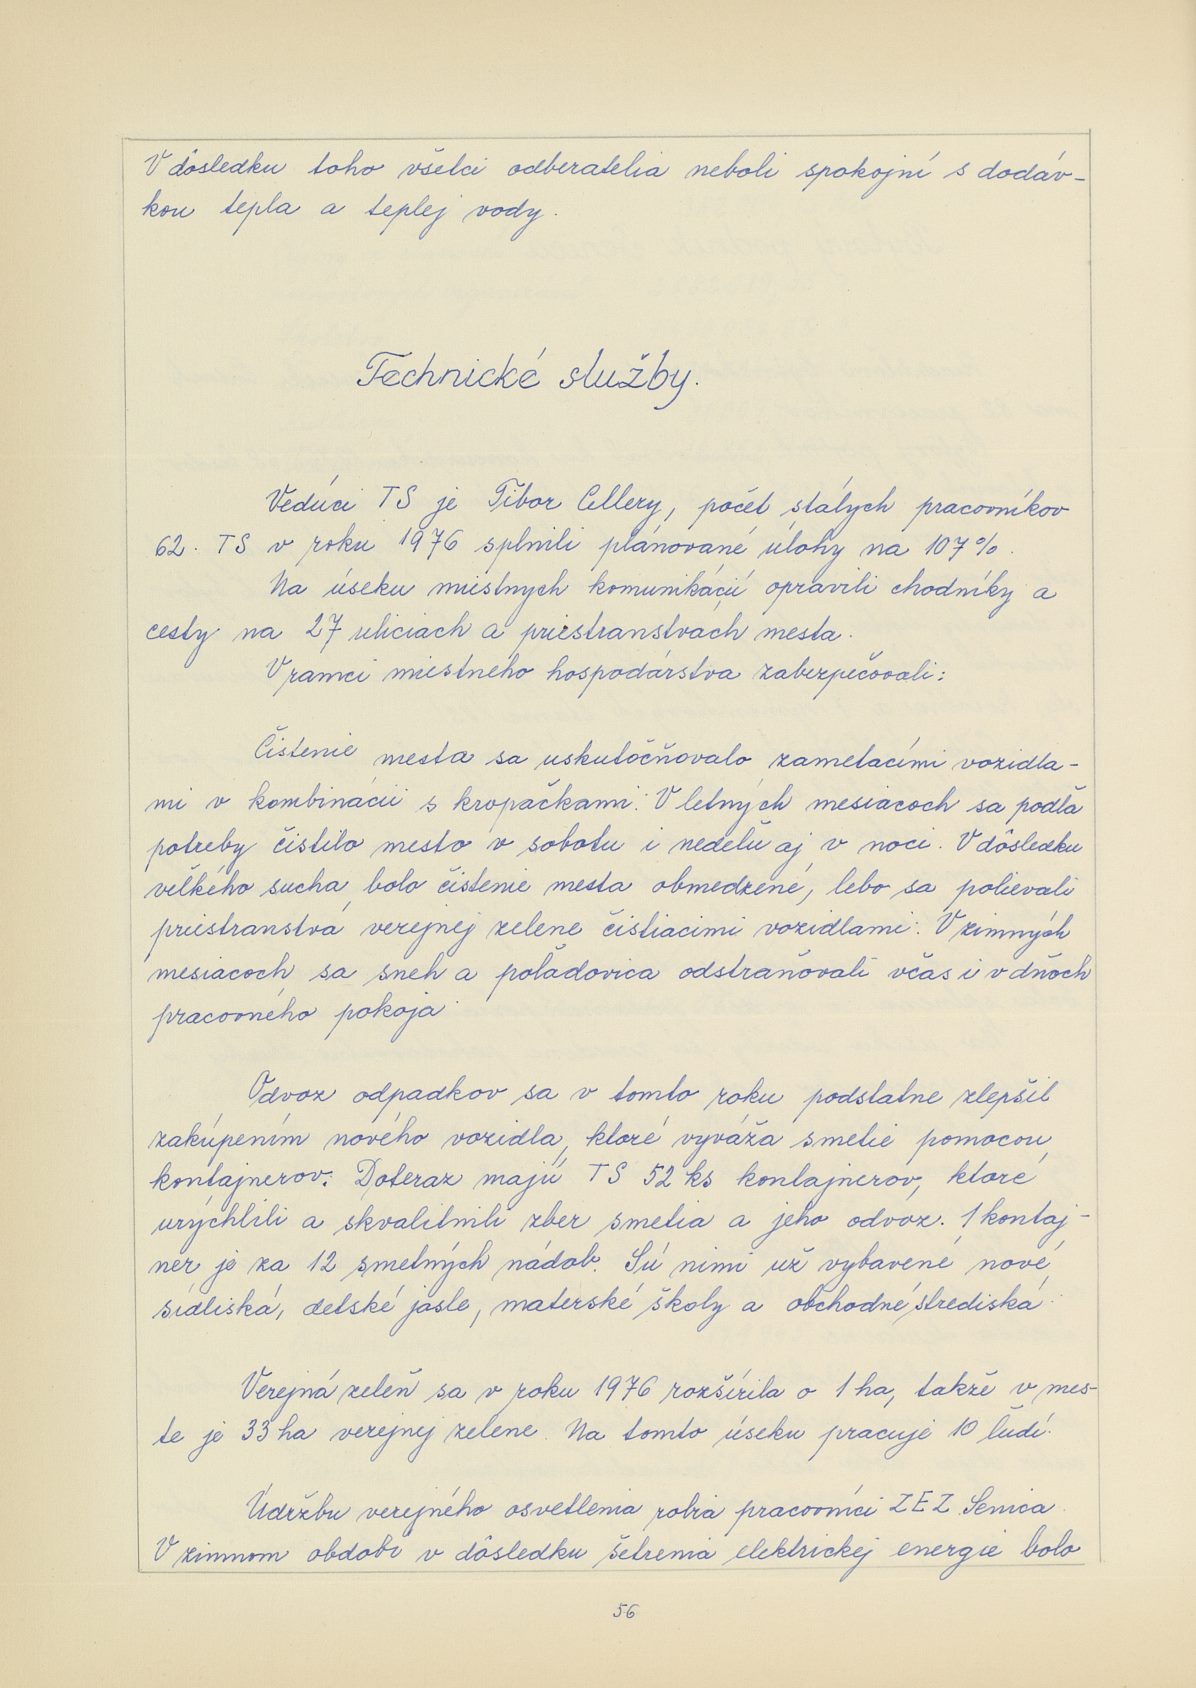 V dôsledku toho všetci odberatelia neboli spokojní s dodáv-
kou tepla a teplej vody.
Technické služby.
Vedúci TS je Tibor Cellery, počet stálych pracovníkov
62. TS v roku 1976 splnili plánované úlohy na 107%.
Na úseku miestnych komunikácií opravili chodníky a
cesty na 27 uliciach a priestranstvach mesta.
V rámci miestneho hospodárstva zabezpečovali:
Čistenie mesta sa uskutočňovalo zametacími vozidla-
mi v kombinácii s kropačkami. V letných mesiacoch sa podľa
potreby čistilo mesto v sobotu i nedeľu aj v noci. V dôsledku
veľkého sucha bolo čistenie mesta obmedzené, lebo sa polievali
priestranstvá verejnej zelene čistiacimi vozidlami. V zimných
mesiacoch sa sneh a poľadovica odstraňovali včas i v dňoch
pracovného pokoja.
Odvoz odpadkov sa v tomto roku podstatne zlepšil
zakúpením nového vozidla, ktoré vyváža smetie pomocou
kontajnerov. Doteraz majú TS 52 ks kontajnerov, ktoré
urýchlili a skvalitnili zber smetia a jeho odvoz. 1 kontaj-
ner je za 12 smetných nádob. Sú nimi už vybavené nové
sídliská, detské jasle, materské školy a obchodné strediská.
Verejná zeleň sa v roku 1976 rozšírila o 1 ha, takže v mes-
te je 33 ha verejnej zelene. Na tomto úseku pracuje 10 ľudí.
Údržbu verejného osvetlenia robia pracovníci ZEZ Senica.
V zimnom období v dôsledku šetrenia elektrickej energie bolo
56